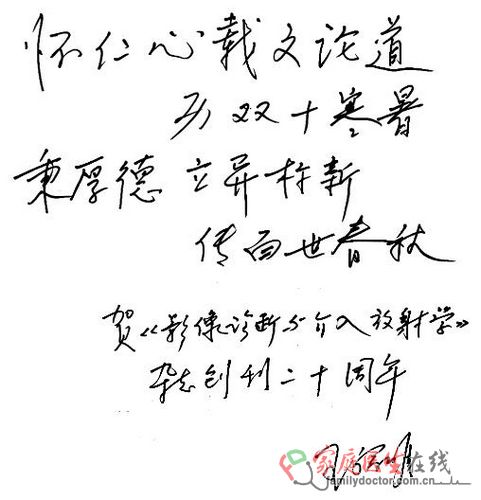 怀仁心载文论道
历双十寒暑
秉厚德立异标新
传百世春秋
贺《影像诊断与介入放射学》
杂志创刊二十周年
家庭医生在线
familydoctor.com.cn